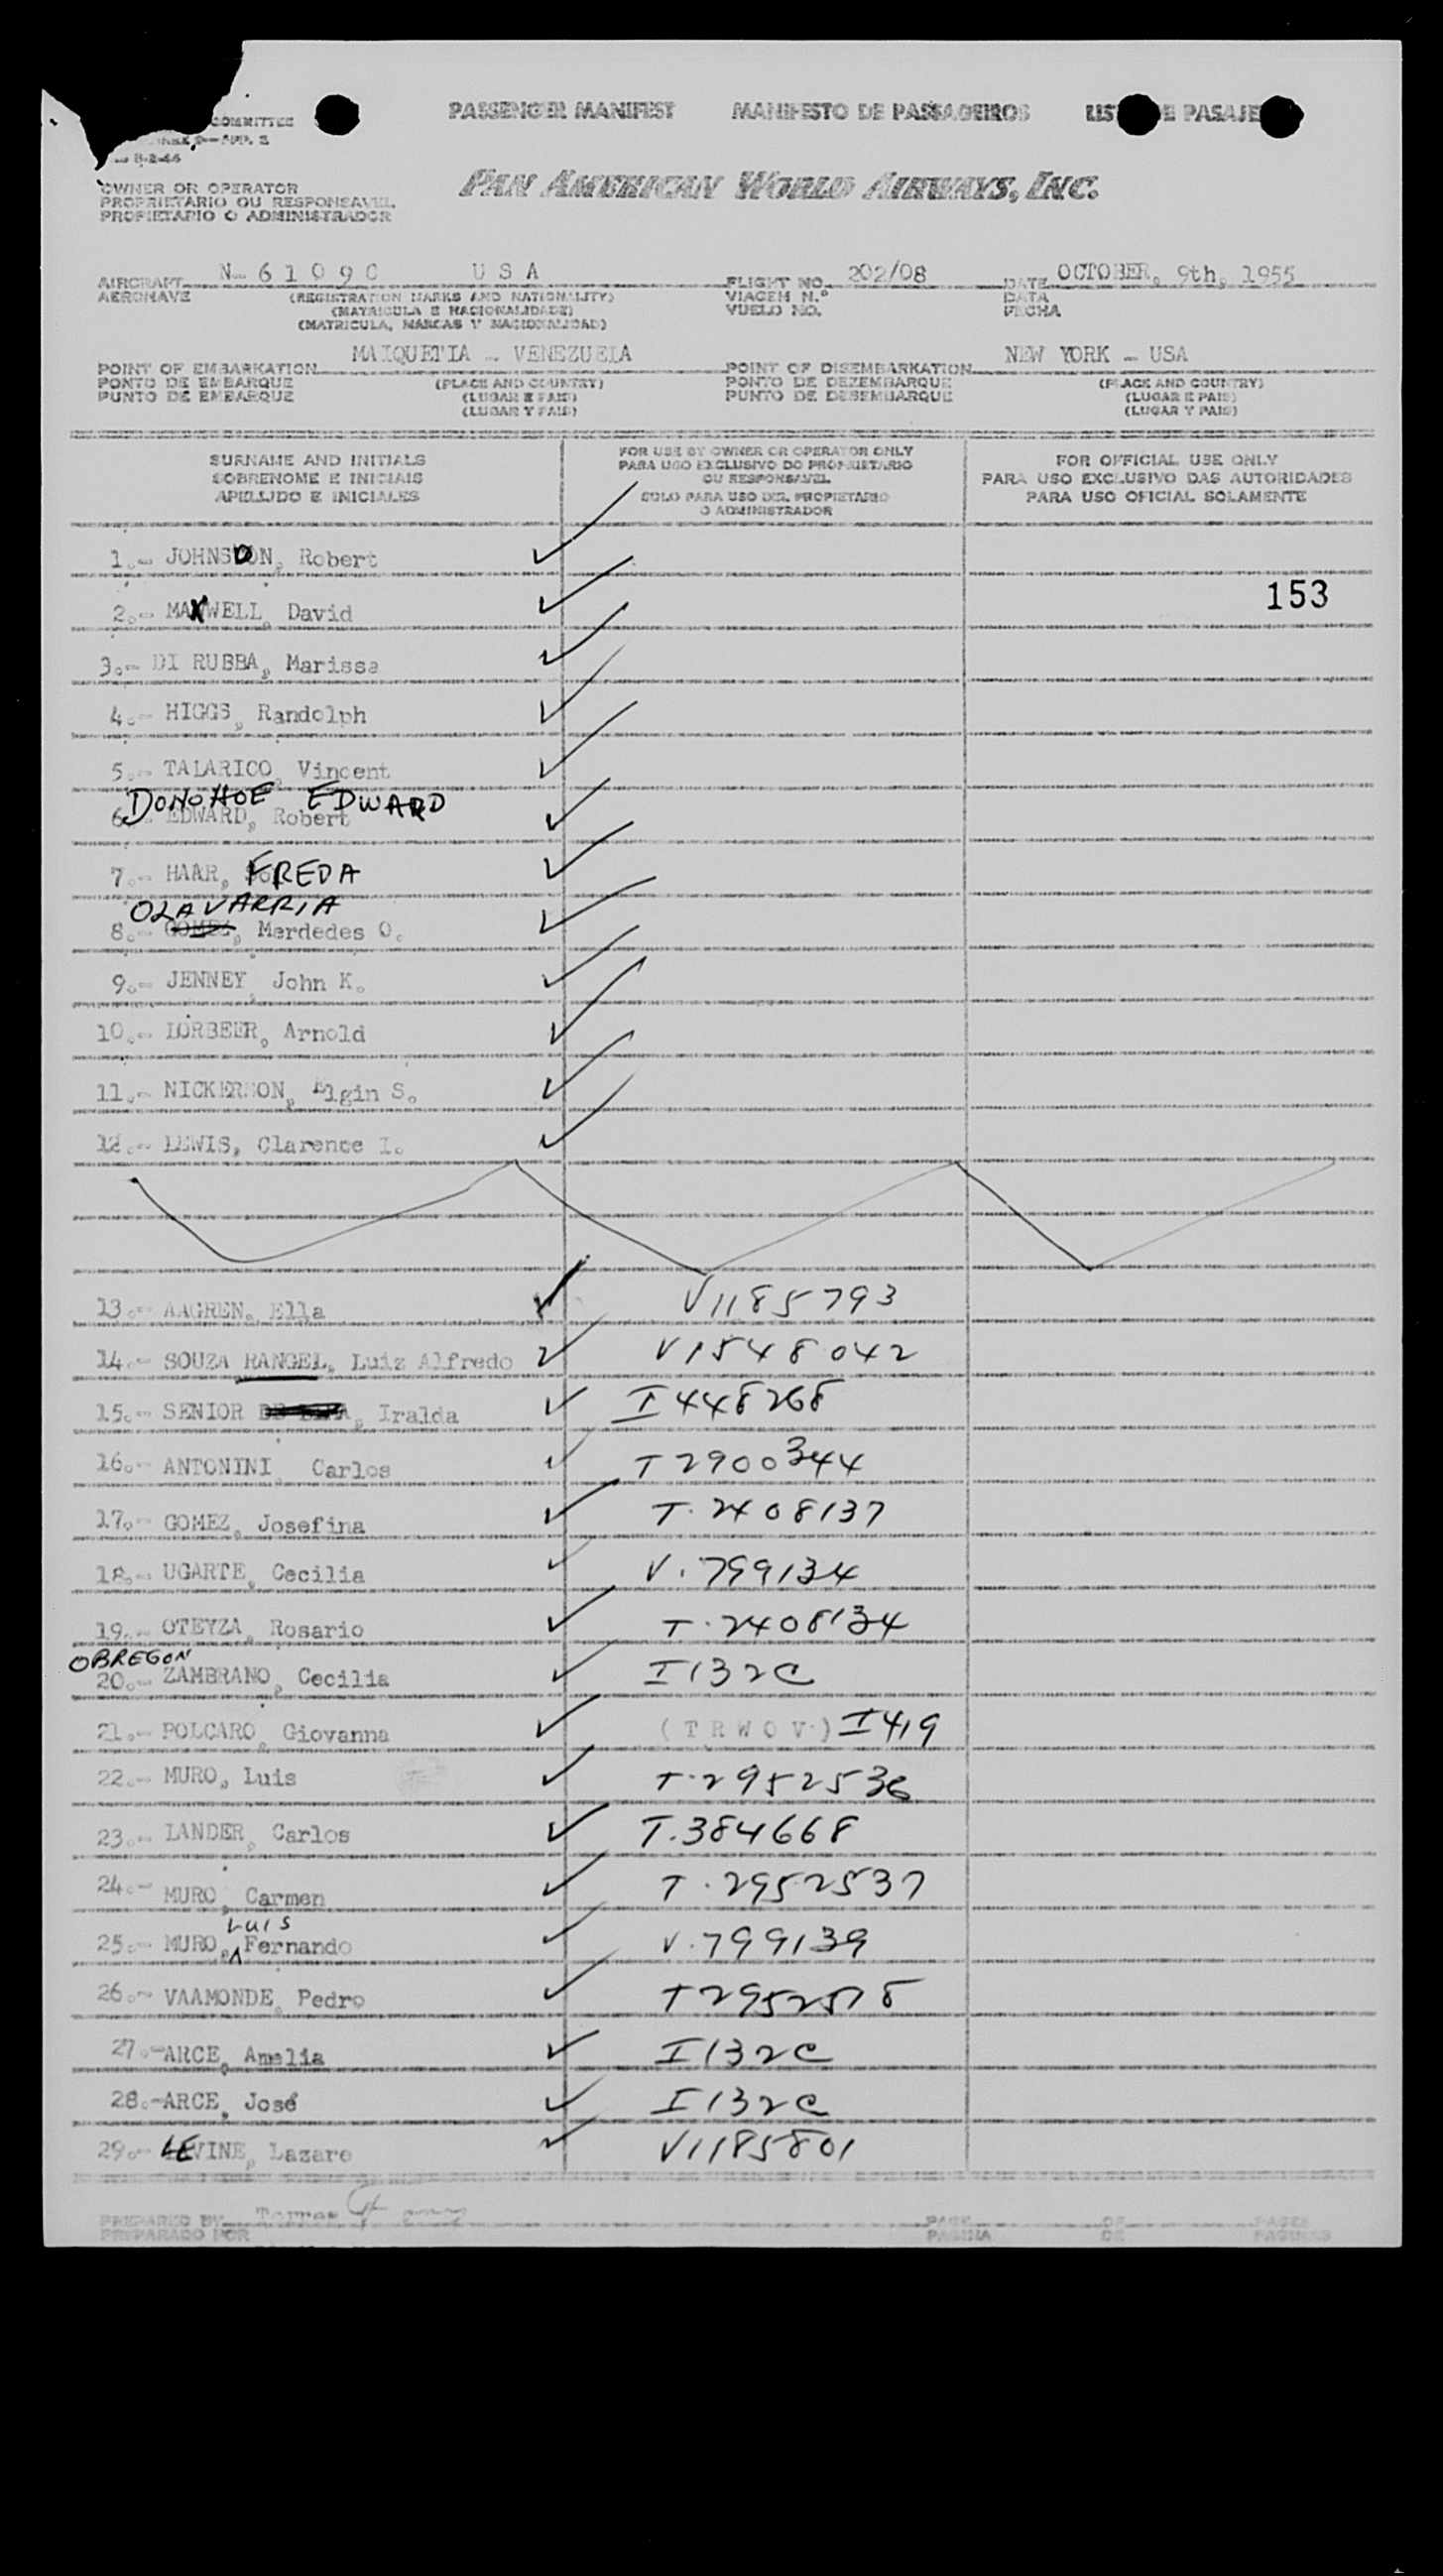 COMMITTEE
PASSENGER MANIFEST MANIFESTO DE PASSAGEIROS LIS DE PASAJE
OWNER OR OPERATOR
PROPRIETARIO OU RESPONSAVEL
PROPIETARIO O ADMINISTRADOR
PAN AMERICAN WORLD AIRWAYS, INC.
AIRCRAFT N-6109C USA FLIGHT NO. 202/08 DATE OCTOBER, 9th, 1955
AERONAVE (REGISTRATION MARKS AND NATIONALITY) VIAGEM N.° DATA
(MATRICULA E NACIONALIDADE) VUELO NO. FECHA
(MATRICULA, MARCAS Y NACIONALIDAD)
MAIQUETIA - VENEZUELA NEW YORK - USA
POINT OF EMBARKATION POINT OF DISEMBARKATION
PONTO DE EMBARQUE (PLACE AND COUNTRY) PONTO DE DEZEMBARQUE (PLACE AND COUNTRY)
PUNTO DE EMBARQUE (LUGAR E PAIS) PUNTO DE DESEMBARQUE (LUGAR E PAIS)
(LUGAR Y PAIS) (LUGAR Y PAIS)
SURNAME AND INITIALS
SOBRENOME E INICIAIS
APELLIDO E INICIALES
FOR USE BY OWNER OR OPERATOR ONLY
PARA USO EXCLUSIVO DO PROPRIETARIO
OU RESPONSAVEL
SOLO PARA USO DEL PROPIETARIO
O ADMINISTRADOR
FOR OFFICIAL USE ONLY
PARA USO EXCLUSIVO DAS AUTORIDADES
PARA USO OFICIAL SOLAMENTE
1.- JOHNSDON, Robert
153
2.- MAXWELL, David
3.- DI RUBBA, Marissa
4.- HIGGS, Randolph
5.- TALARICO, Vincent
DONOHOE EDWARD
6.- EDWARD, Robert
7.- HAAR, FREDA
OLAVARRIA
8.- GOMEZ, Merdedes O.
9.- JENNEY, John K.
10.- LORBEER, Arnold
11.- NICKERSON, Elgin S.
12.- LEWIS, Clarence I.
13.- AAGREN, Ella V1185793
14.- SOUZA RANGEL, Luiz Alfredo V1548042
15.- SENIOR, Iralda I448268
16.- ANTONINI, Carlos T2900344
17.- GOMEZ, Josefina T.2408137
18.- UGARTE, Cecilia V.799134
19.- OTEYZA, Rosario T.2408134
OBREGON
20.- ZAMBRANO, Cecilia I132C
21.- POLCARO, Giovanna (TRWOV) I419
22.- MURO, Luis T.2952536
23.- LANDER, Carlos T.384668
24.- MURO, Carmen T.2952537
LUIS
25.- MURO, Fernando V.799139
26.- VAAMONDE, Pedro T2952578
27.- ARCE, Amelia I132C
28.- ARCE, José I132C
29.- LEVINE, Lazaro V1185801
PREPARED BY Torres PAGE OF PAGES
PREPARADO POR PAGINA DE PAGINAS